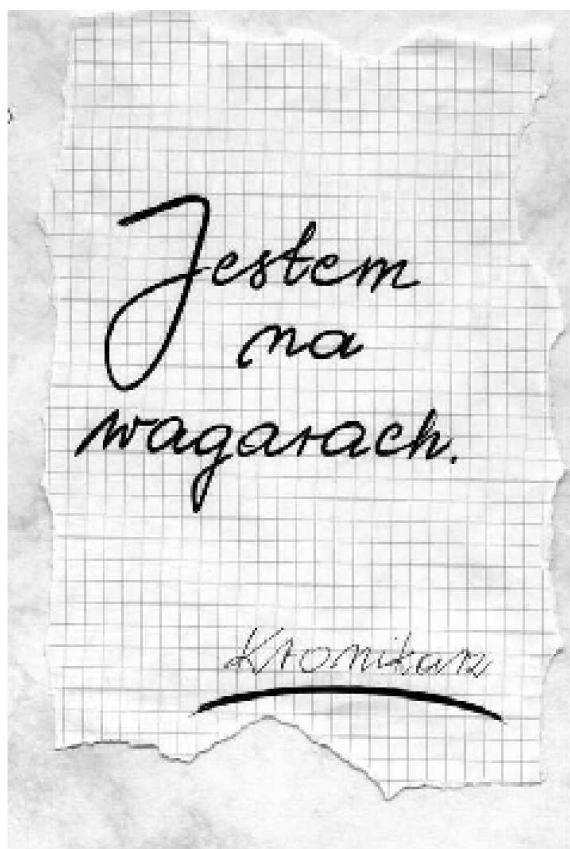 Jestem
na
wagarach.
Kronikarz